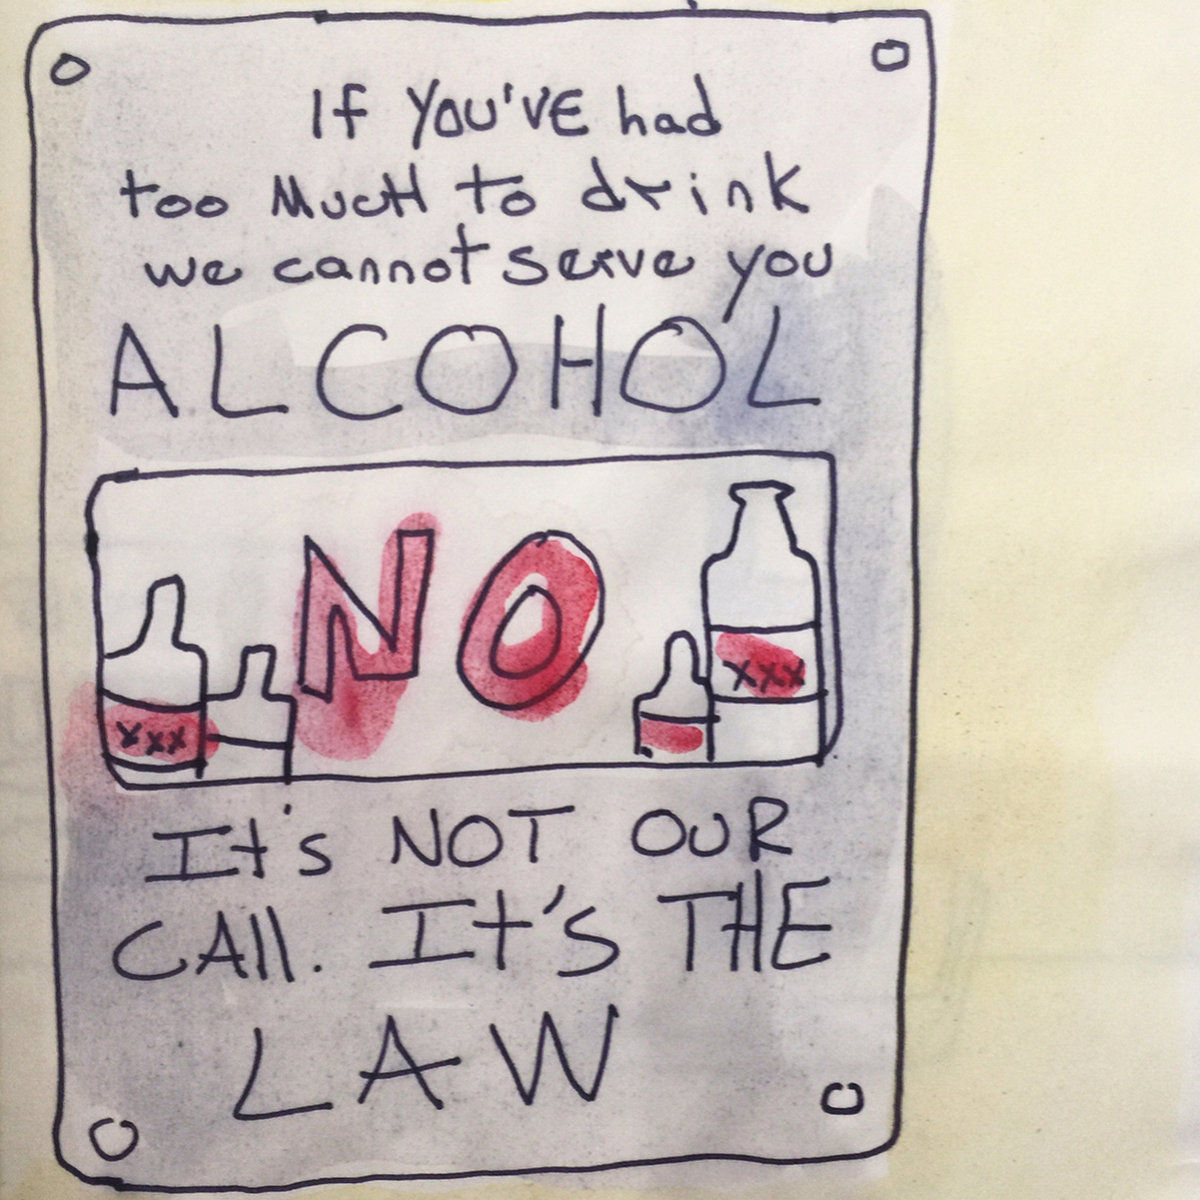 If YOU'VE had
too MucH to drink
we cannot serve you
ALCOHOL
NO
XXX
XXX
It's NOT OUR
CAll. It's THE
LAW